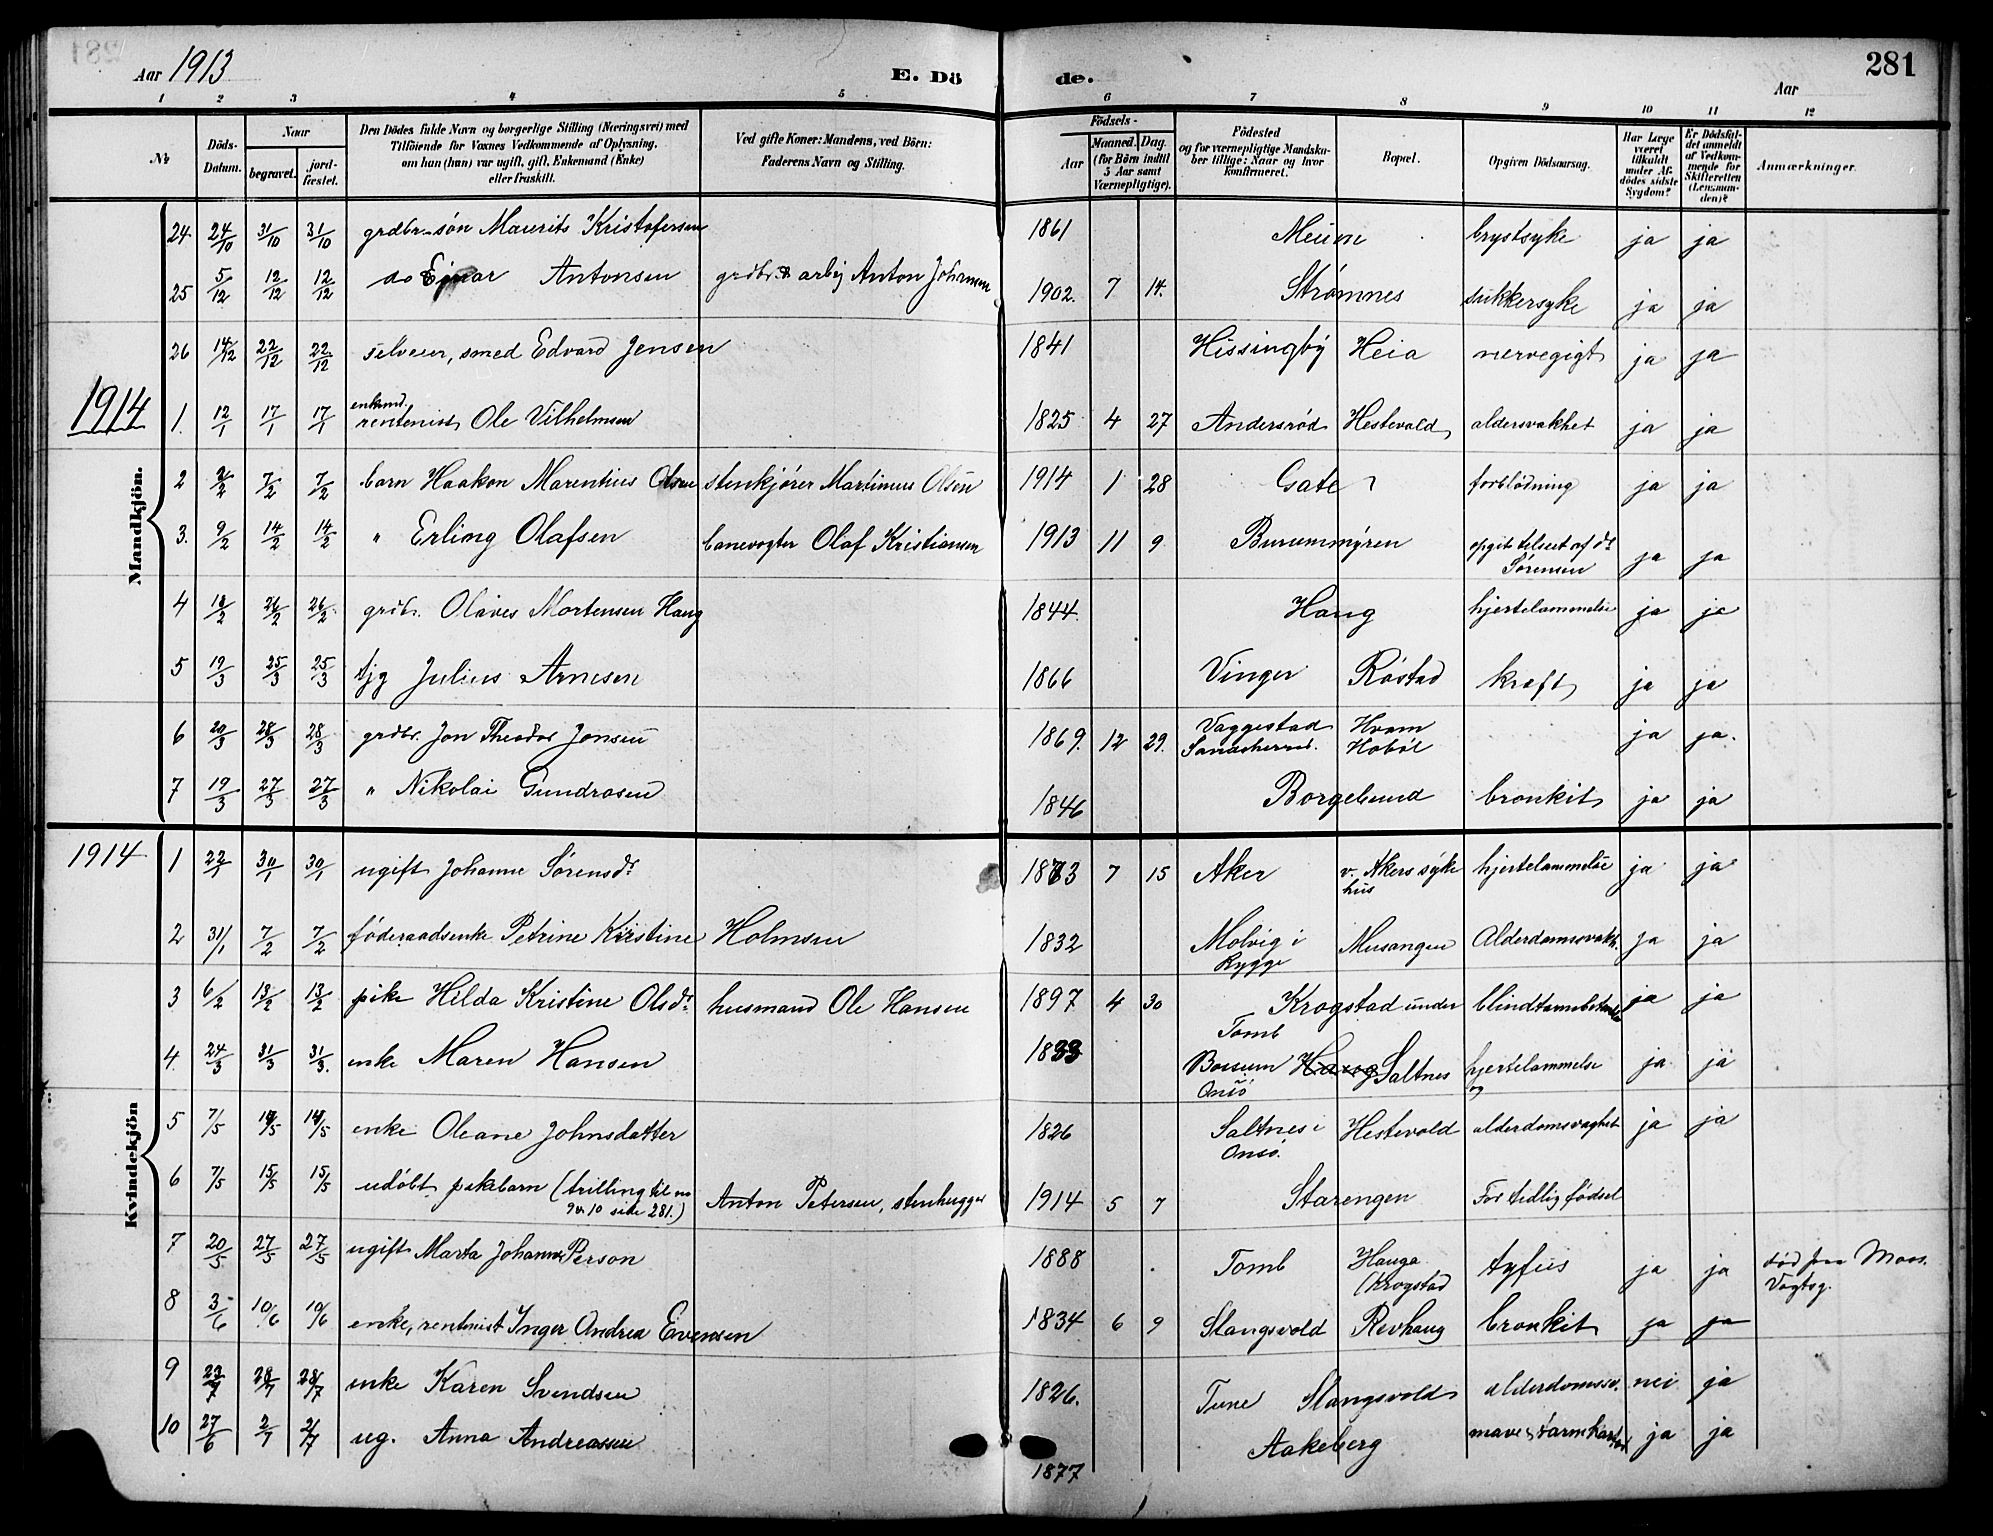 Aar 1913
E. Dö
de.
Aar
281
1 2 3 4 5 6 7 8 9 10 11 12
№ Döds-Datum. Naar begravet. jordfæstet. Den Dödes fulde Navn og borgerlige Stilling (Næringsvei) med Tilföiende for Voxnes Vedkommende af Oplysning, om han (hun) var ugift, gift, Enkemand (Enke) eller fraskilt. Ved gifte Koner: Mandens, ved Börn: Faderens Navn og Stilling.
Födsels- Aar Maaned. Dag. (for Börn indtil 5 Aar samt Værnepligtige). Födested og for værnepligtige Mandskaber tillige: Naar og hvor konfirmeret. Bopæl. Opgiven Dödsaarsag. Har Læge været tilkaldt under Afdödes sidste Sygdom? Er Dödsfaldet anmeldt af Vedkommende for Skifteretten (Lensmanden)? Anmærkninger.
Mandkjön.
24 24/10 31/10 31/10 grdbr. søn Maurits Kristofersen 1861 brystsyke ja ja
25 5/12 12/12 12/12 do Ejnar Antonsen grdbr. & arbj Anton Johansen 1902. 7 14. Strømnes sukkersyke ja ja
26 14/12 22/12 22/12 selveier, smed Edvard Jensen 1841 Hissingby Heia nervegigt ja ja
1914
1. 12/1 17/1 17/1 enkemd. rentenist Ole Vilhelmsen 1825 4 27 Andersrød Hestevold aldersvakhet ja ja
2 2/2 7/2 7/2 barn Haakon Marentius Olsen stenkjører Martinius Olsen 1914 1 28 Gate forblødning ja ja
3. 9/2 14/2 14/2 " Erling Olafsen banevogter Olaf Kristiansen 1913 11 9 Burummyren opgit telset af dr Sørensen ja ja
4 18/2 26/2 26/2 grdbr. Olaves Mortensen Haug 1844. Haug hjertelammelse ja ja
5 19/3 25/3 25/3 tjg Julius Arnesen 1866 Vinger Røstad kræft ja ja
6 20/3 28/3 28/3 grdbr. Jon Theodor Jonsen 1869. 12 29. Vaggestad Hvam Hobøl ja ja.
7 19/3 27/3 27/3 " Nikolai Gundrosen 1846 Borgelund bronkit ja ja
1914
Kvindekjön
1 22/1 30/1 30/1 ugift Johanne Sørensdr 1873 7 15 Aker v. Akers sykehus hjertelammelse ja ja
2 31/1 7/2 7/2 føderaadsenke Petrine Kristine Holmsen 1832 Molvig i Rygge Musangen Alderdomssvakh. ja ja
3 6/2 13/2 13/2 pike Hilda Kristine Olsdr. husmand Ole Hansen 1897 4 30 Krogstad under Tomb ja ja
4. 24/3 31/3 31/3. enke Maren Hansen 1833 Bossum Onsø Haug Saltnes hjertelammelse og ja ja
5 7/5 14/5 14/5 enke Oleane Johnsdatter 1826 Saltnes i Onsø. Hestevold alderdomsvaghet ja ja
6 7/5 15/5 15/5 udøbt pikebarn (trilling til no 9 & 10 side 281.) Anton Petersen, stenhugger 1914 5 7 Starengen For tidlig fødsel
7 20/5 27/5 27/5 ugift Marta Johanne Person 1888 Tomb Hauga (Krogstad tyfus ja ja død paa Moss.
8 3/6 10/6 10/6 enke, rentenist Inger Andrea Evensen 1834 6 9 Slangsvold Revhaug bronkit ja ja
9 23/7 28/7 28/7 enke Karen Svendsen 1826. Tune Slangsvold alderdomssv. nei ja
10 27/6 2/7 2/7 ug. Anna Andreassen 1877 Aakeberg mave & tarmkatar ja ja